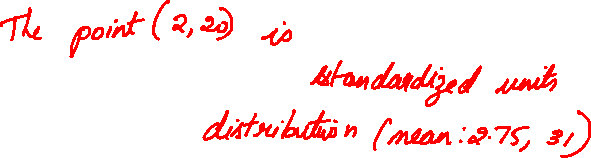 The point (2, 20) is
standardized units
distribution (mean: 2.75, 31)